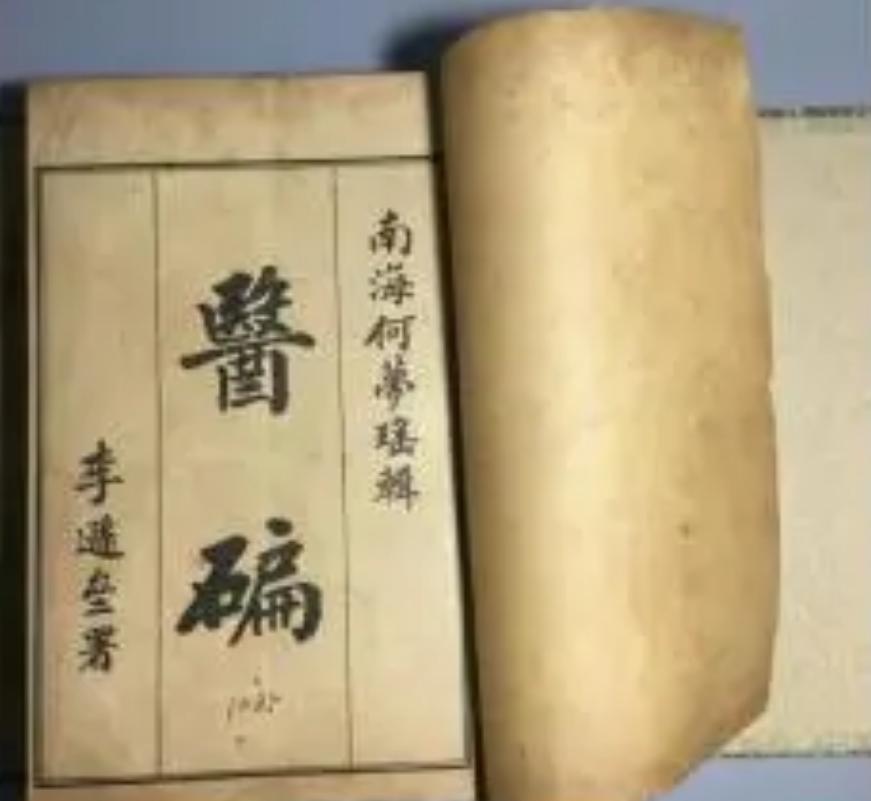 南海何夢瑤輯
醫碥
李遯叄署